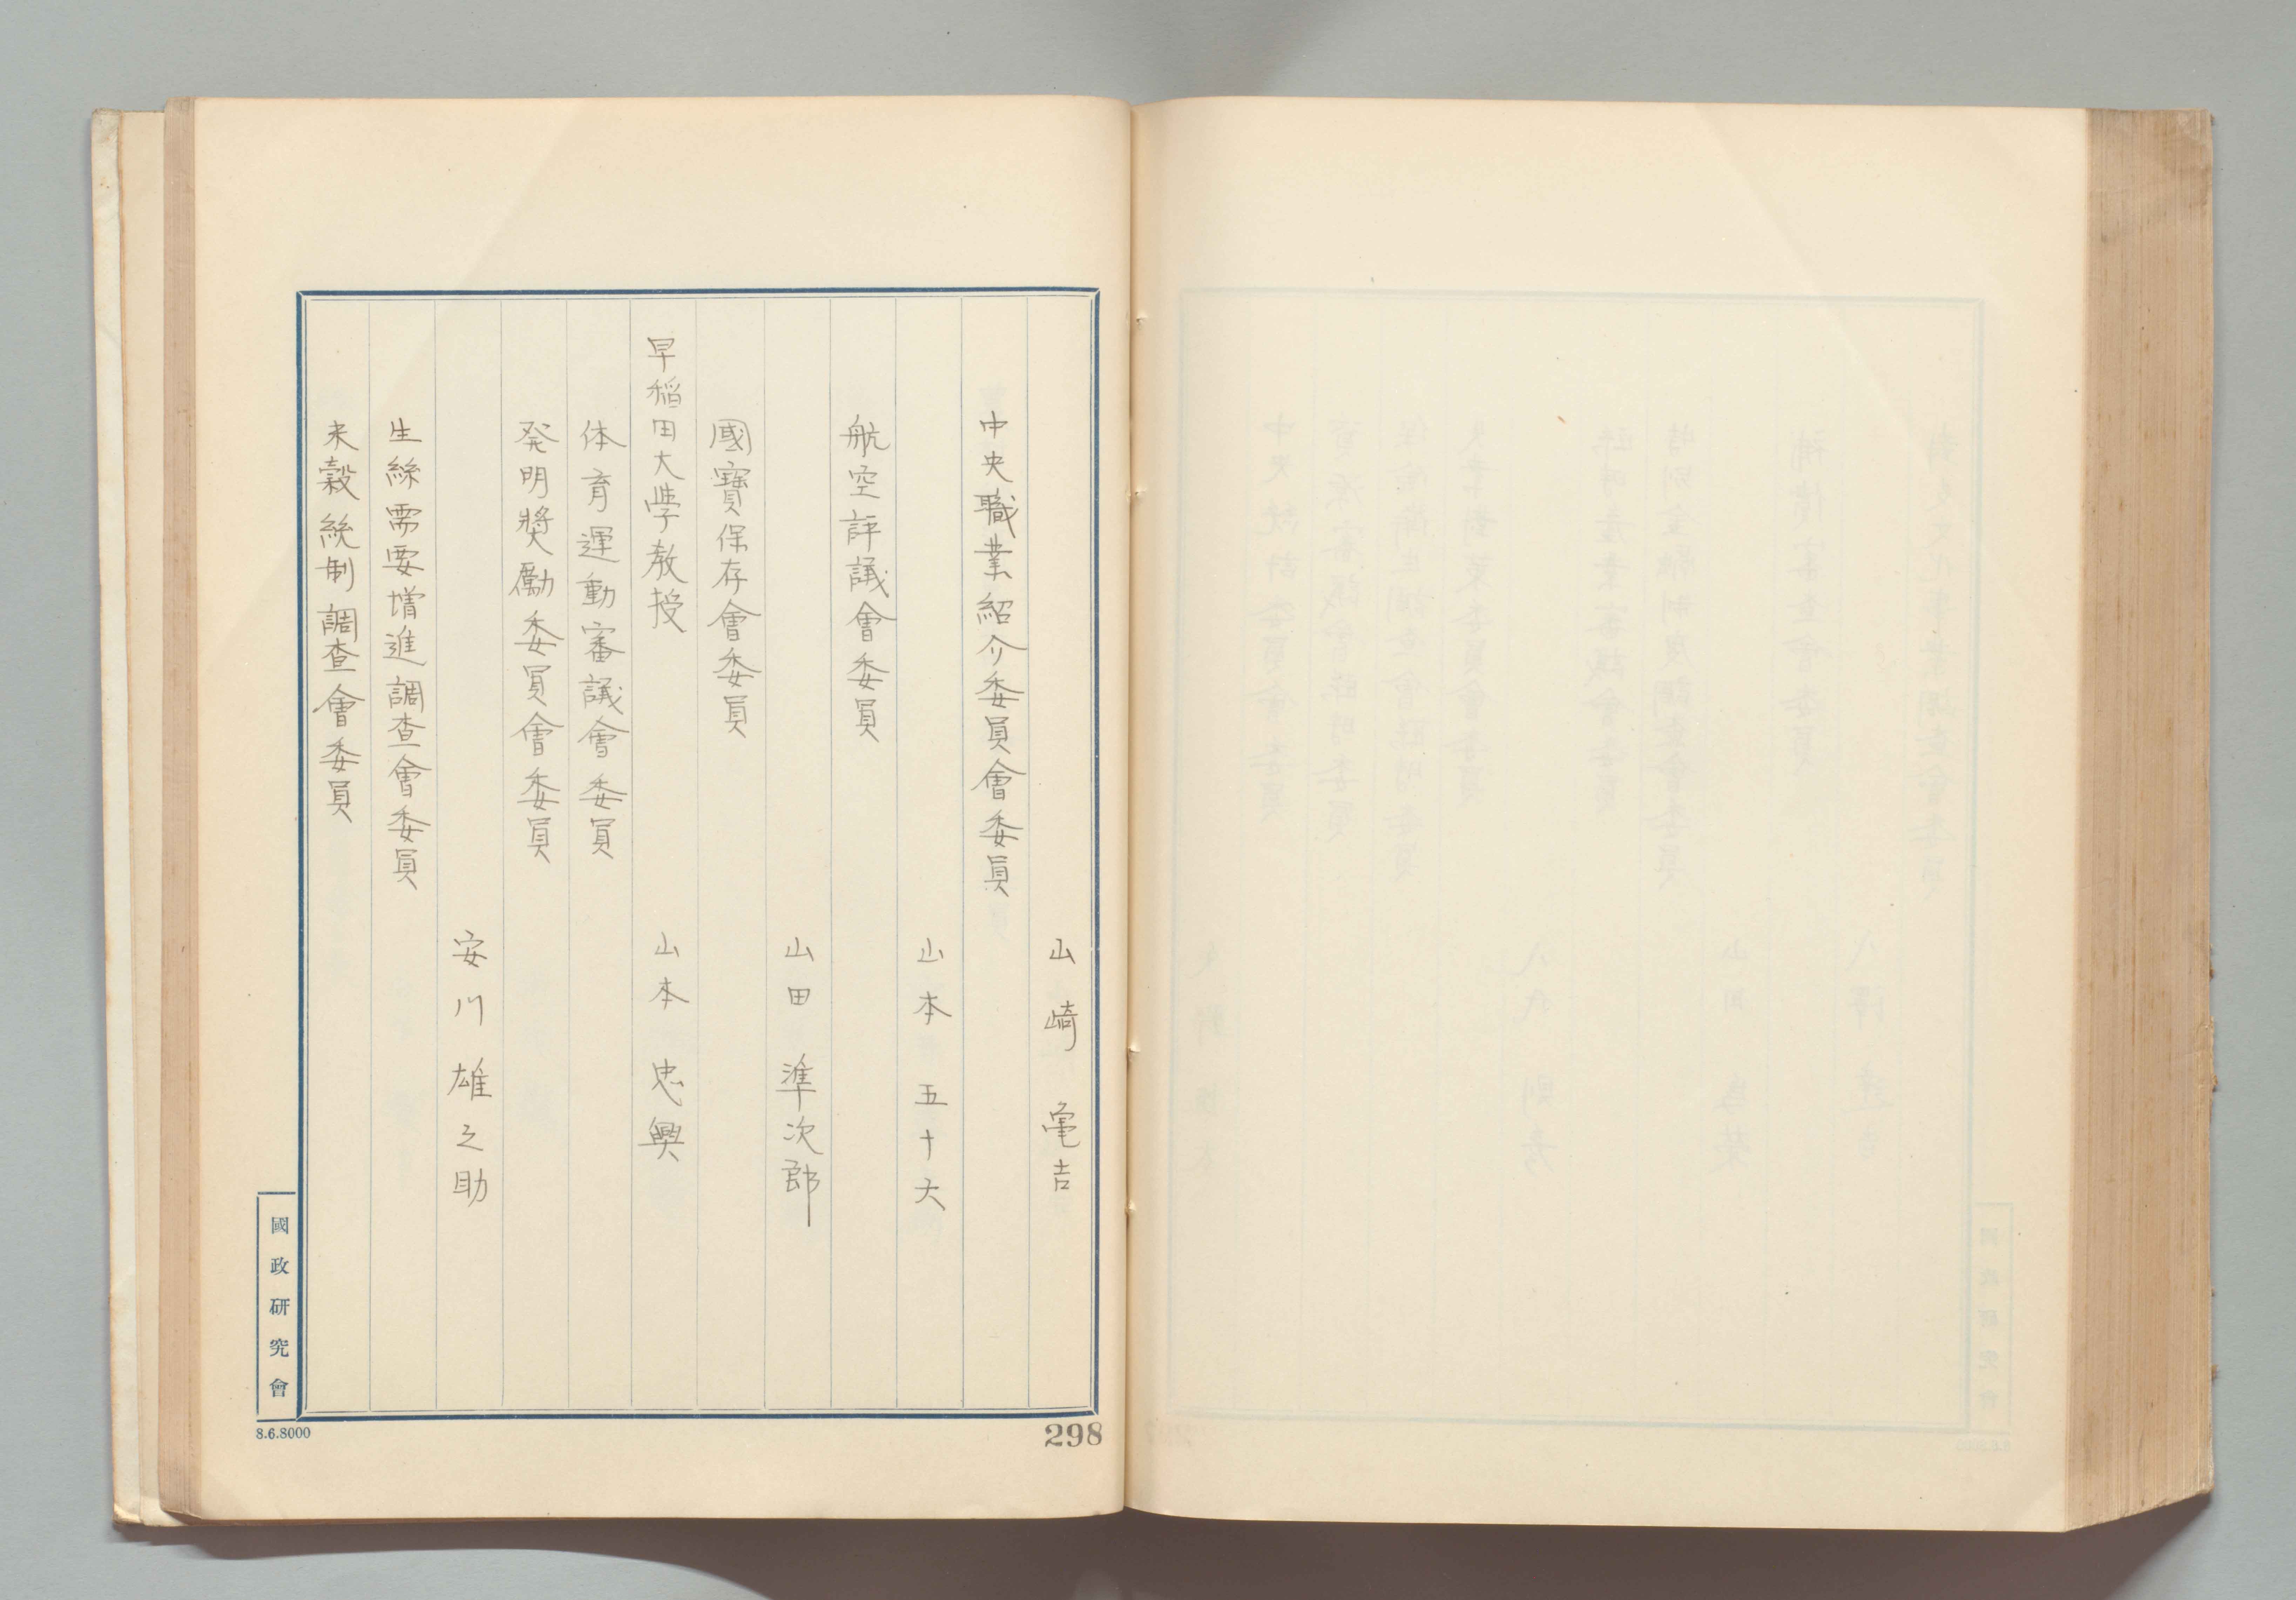 山崎亀吉
中央職業紹介委員會委員
山本五十六
航空評議會委員
山田準次郎
國寶保存會委員
早稲田大学教授 山本忠興
体育運動審議會委員
発明奬励委員會委員
安川雄之助
生絲需要増進調査會委員
米穀統制調査會委員
國政研究會
8.6.8000
298